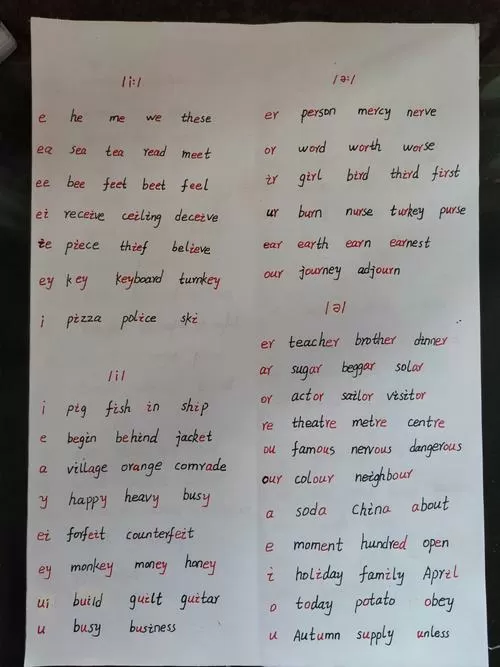 /i:/
e he me we these
ea sea tea read meet
ee bee feet beet feel
ei receive ceiling deceive
ie piece thief believe
ey key keyboard turnkey
i pizza police ski
/i/
i pig fish in ship
e begin behind jacket
a village orange comrade
y happy heavy busy
ei forfeit counterfeit
ey monkey money honey
ui build guilt guitar
u busy business
/ə:/
er person mercy nerve
or word worth worse
ir girl bird third first
ur burn nurse turkey purse
ear earth earn earnest
our journey adjourn
/ə/
er teacher brother dinner
ar sugar beggar solar
or actor sailor visitor
re theatre metre centre
ou famous nervous dangerous
our colour neighbour
a soda China about
e moment hundred open
i holiday family April
o today potato obey
u Autumn supply unless